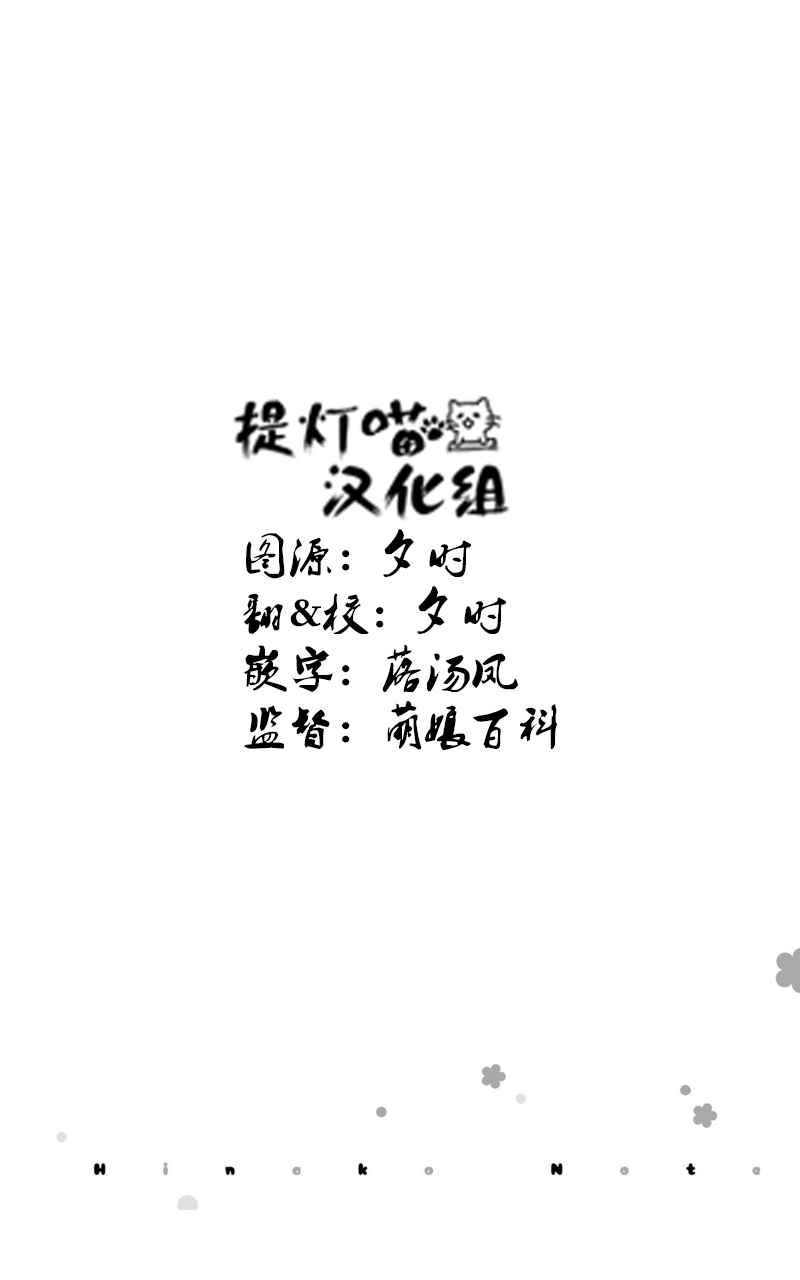 提灯喵
汉化组
图源：夕时
翻&校：夕时
嵌字：落汤凤
监督：萌娘百科
Hinako Note